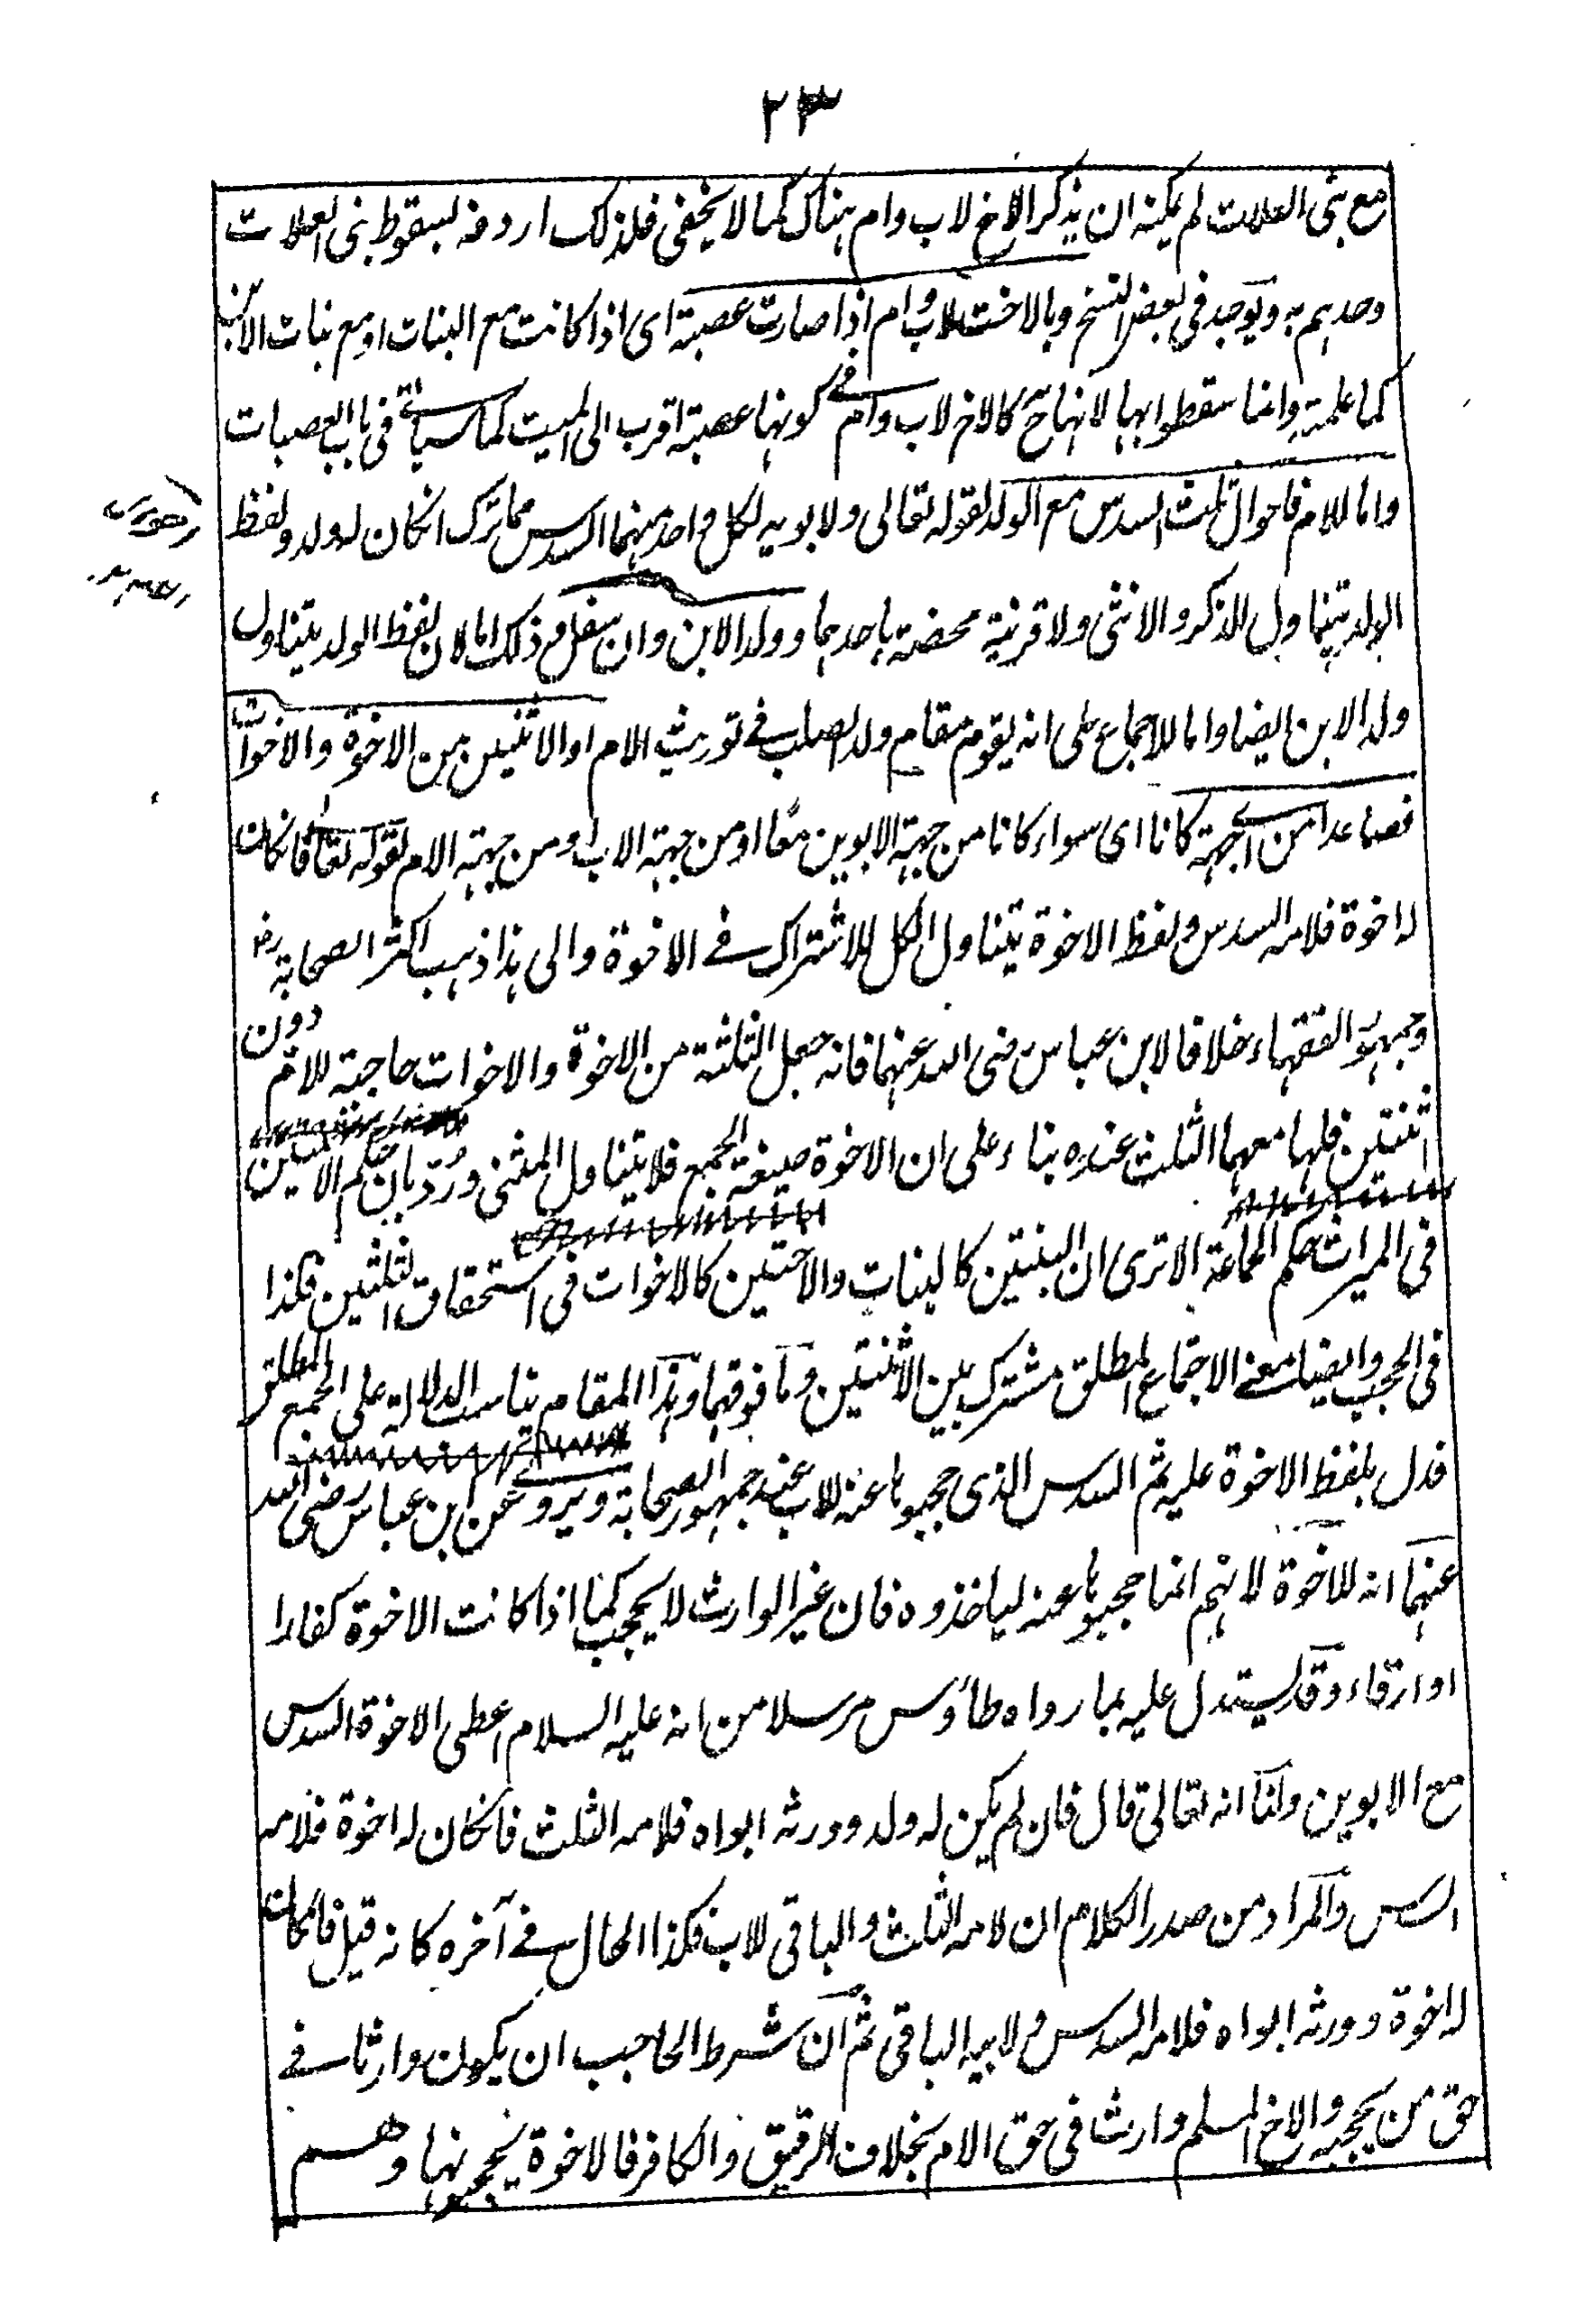 ٢٣
مع بنى العلات لم يمكنه ان يذكر الاخ لاب وام هناك كما لا يخفى فلذلك اردفه لسقوط بنى العلات
وحدهم به ويوجد فى بعض النسخ وبالاخت لاب وام اذا صارت عصبة اى اذا كانت مع البنات او مع بنات الابن
كما علمته وانما سقطوا بها لانها ح كالاخ لاب وام فى كونها عصبة اقرب الى الميت كما سياتى فى باب العصبات
واما للام فاحوال ثلث السدس مع الولد لقوله تعالى ولابويه لكل واحد منهما السدس مما ترك انكان له ولد ولفظ
الولد يتناول الذكر والانثى ولا قرينة مخصصة باحدهما وولد الابن وان سفل وذلك اما لان لفظ الولد يتناول
ولد الابن ايضا واما للاجماع على انه يقوم مقام ولد الصلب فى توريث الام او الاثنين من الاخوة والاخوات
فصاعدا من اى جهة كانا اى سواء كانا من جهة الابوين معا او من جهة الاب او من جهة الام لقوله تعا فانكان
له اخوة فلامه السدس ولفظ الاخوة يتناول الكل للاشتراك فى الاخوة والى هذا ذهب اكثر الصحابة رض
وجمهور الفقهاء خلافا لابن عباس رضى الله عنهما فانه جعل الثلثة من الاخوة والاخوات حاجبة للام دون
اثنتين فلها معهما الثلث عنده بناء على ان الاخوة صيغة الجمع فلا يتناول المثنى ورد بان حكم الاثنين
فى الميراث حكم الجماعة الا ترى ان البنتين كالبنات والاختين كالاخوات فى استحقاق الثلثين فكذا
فى الحجب وايضا معنى الاجتماع المطلق مشترك بين الاثنتين وما فوقهما وهذا المقام يناسب الدلالة على الجمع المطلق
فدل بلفظ الاخوة عليه ثم السدس الذى حجبوها عنه للاب عند جمهور الصحابة ويروى عن ابن عباس رضى الله
عنهما انه للاخوة لانهم انما حجبوها عنه لياخذوه فان غير الوارث لا يحجب كما اذا كانت الاخوة كفارا
او ارقاء وقد يستدل عليه بما رواه طاؤس مرسلا من انه عليه السلام اعطى الاخوة السدس
مع الابوين ولنا انه تعالى قال فان لم يكن له ولد وورثه ابواه فلامه الثلث فانكان له اخوة فلامه
السدس والمراد من صدر الكلام ان لامه الثلث والباقى للاب فكذا الحال فى آخره كانه قيل فانكان
له اخوة وورثه ابواه فلامه السدس ولابيه الباقى ثم ان شرط الحاجب ان يكون وارثا فى
حق من يحجبه والاخ المسلم وارث فى حق الام بخلاف الرقيق والكافر فالاخوة يحجبونها وهم